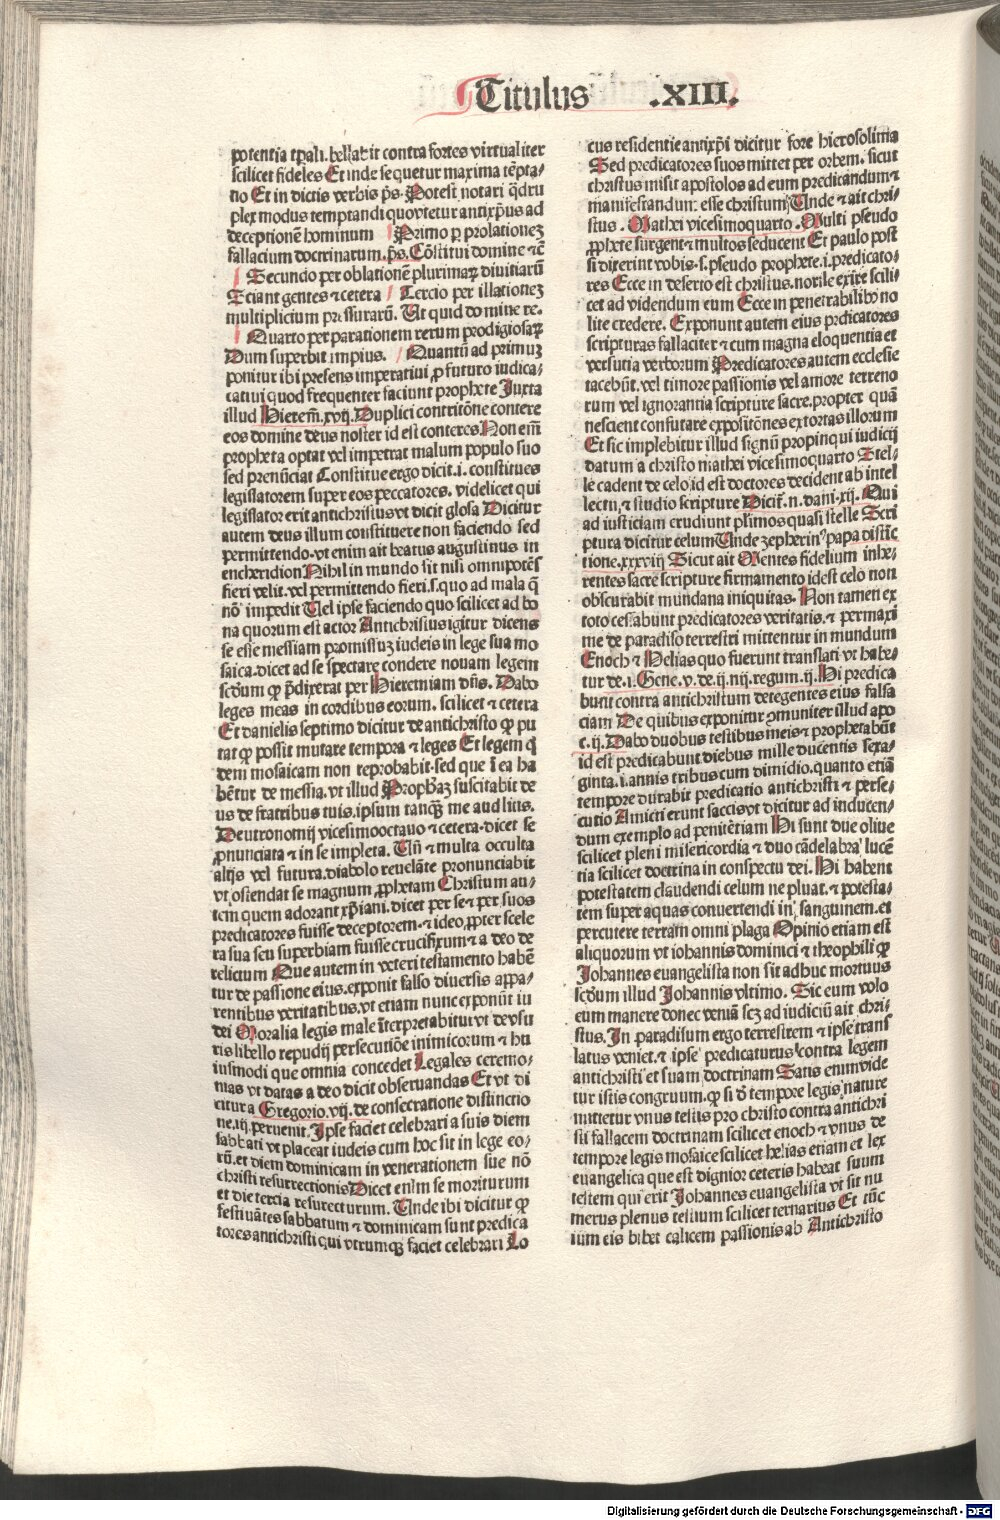 Titulus .XIII.
potentia tp̄ali. bellabit contra fortes virtualiter
scilicet fideles Et inde sequetur maxima tēpta⸗
tio Et in dictis verbis p̄s. Potest notari q̄dru
plex modus temptandi quo vtetur antixp̄us ad
deceptionē hominum Primo ꝑ prolationeʒ
fallacium doctrinarum. p̄s. Cōstitui domine ⁊c̄
Secundo per oblationē plurimaꝝ diuitiarū
Sciant gentes ⁊ cetera Tercio per illationeʒ
multiplicium pressurarū. Ut quid domine re.
Quarto per parationem rerum prodigiosaꝝ
Dum superbit impius. Quantū ad primuʒ
ponitur ibi presens imperatiui ꝓ futuro iudica⸗
tatiui quod frequenter faciunt prophete Juxta
illud Hierem̄. xvij. Duplici contritōne contere
eos domine deus noster id est conteres. Non em̄
propheta optat vel impetrat malum populo suo
sed prenūciat Constitue ergo dicit .i. constitues
legislatorem super eos peccatores. videlicet qui
legislator erit antichristus vt dicit glosa Dicitur
autem deus illum constituere non faciendo sed
permittendo. vt enim ait beatus augustinus in
encheridion Nihil in mundo fit nisi omnipotēs
fieri velit. vel permittendo fieri. s. quo ad mala q̄
nō impedit Uel ipse faciendo quo scilicet ad bo
na quorum est actor Antichristus igitur dicens
se esse messiam promissuʒ iudeis in lege sua mo
saica. dicet ad se spectare condere nouam legem
scḋum ꝙ p̄dixerat per Hieremiam dn̄s. Dabo
leges meas in cordibus eorum. scilicet ⁊ cetera
Et danielis septimo dicitur de antichristo ꝙ pu
tat ꝙ possit mutare tempora ⁊ leges Et legem q̄
dem mosaicam non reprobabit. sed que ī ea ha
bētur de messia. vt illud Prophāʒ suscitabit de
us de fratribus tuis. ipsum tanq̄ʒ me audlius.
Deutronomij vicesimooctauo ⁊ cetera. dicet se
ꝓnunciata ⁊ in se impleta. Un̄ ⁊ multa occulta
alijs vel futura. diabolo reuelāte pronunciabit
vt ostendat se magnum ꝓphetam Christum au⸗
tem quem adorant xp̄iani. dicet per se ⁊ per suos
predicatores fuisse deceptorem. ⁊ ideo ꝓpter scele
ra sua seu superbiam fuisse crucifixum ⁊ a deo de
relictum Que autem in veteri testamento habē
tur de passione eius. exponit falso diuersis appa⸗
rentibus veritatibus. vt etiam nunc exponūt iu
dei Moralia legis male īterpretabitur vt de vsu
ris libello repudij persecutiōe inimicorum ⁊ hu
iusmodi que omnia concedet Legales ceremo⸗
nias vt datas a deo dicit obseruandas Et vt di
citur a Gregorio. vij. de consecratione distinctio
ne. iij. peruenit. Ipse faciet celebrari a suis diem
sabbati vt placeat iudeis cum hoc sit in lege eo⸗
rū. et diem dominicam in venerationem sue nō
christi resurrectionis Dicet enim se moriturum
et die tercia resurecturum. Unde ibi dicitur ꝙ
festiuātes sabbatum ⁊ dominicam sunt predica
tores antichristi qui vtrumqꝫ faciet celebrari Lo
cus residentie antixp̄i dicitur fore hierosolima
Sed predicatores suos mittet per orbem. sicut
christus misit apostolos ad eum predicandum ⁊
manifestandum esse christum Unde ⁊ ait chri⸗
stus. Mathei vicesimoquarto. Multi pseudo
ꝓphete surgent ⁊ multos seducent Et paulo post
Si dixerint vobis. s. pseudo prophete .i. predicato⸗
res Ecce in deserto est christus. nolite exire scili⸗
cet ad videndum eum Ecce in penetrabilibꝰ no
lite credere. Exponunt autem eius p̄dicatores
scripturas fallaciter ⁊ cum magna eloquentia et
versutia verborum Predicatores autem ecclesie
tacebūt. vel timore passionis vel amore terreno
rum vel ignorantia scripture sacre. propter quā
nescient confutare expositōnes extortas illorum
Et sic implebitur illud signū propinqui iudicij
datum a christo mathei vicesimoquarto Stel⸗
le cadent de celo id est doctores decident ab intel
lectu ⁊ studio scripture Dicit̄. n. dani. xij. Qui
ad iusticiam erudiunt pl̄imos quasi stelle Scri
ptura dicitur celum Unde zepherinꝰ papa distīc
tione. xxxviij Sicut ait Mentes fidelium inhe⸗
rentes sacre scripture firmamento idest celo non
obscurabit mundana iniquitas. Non tamen ex
toto cessabunt predicatores veritatis. ⁊ permaxi
me de paradiso terrestri mittentur in mundum
Enoch ⁊ Helias quo fuerunt translati vt habe⸗
tur de .i. Gene. v. de .ij. iiij. regum. ij. Hi predica
bunt contra antichristum detegentes eius falsa
ciam De quibus exponitur ꝯmuniter illud apo
c. ij. Dabo duobus testibus meis ⁊ prophetabūt
id est predicabunt diebus mille ducentis sexa⸗
ginta .i. annis tribus cum dimidio. quanto etiā
tempore durabit predicatio antichristi ⁊ perse⸗
cutio Amicti erunt saccis vt dicitur ad inducen⸗
dum exemplo ad penitētiam Hi sunt due oliue
scilicet pleni misericordia ⁊ duo cādelabra lucē
tia scilicet doctrina in conspectu dei. Hi habent
potestatem claudendi celum ne pluat. ⁊ potesta⸗
tem super aquas conuertendi in sanguinem. et
percutere terram omni plaga Opinio etiam est
aliquorum vt iohannis dominici ⁊ theophili ꝙ
Johannes euangelista non sit adhuc mortuus
scḋum illud Johannis vltimo. Sic eum volo
eum manere donec veniā scʒ ad iudiciū ait chri⸗
stus. In paradisum ergo terrestrem ⁊ ipse trans
latus veniet. ⁊ ipse predicaturus contra legem
antichristi et suam doctrinam Satis enim vide
tur istis congruum. ꝙ si ḋ tempore legis nature
mittetur vnus testis pro christo contra antichri
sti fallacem doctrinam scilicet enoch ⁊ vnus de
tempore legis mosaice scilicet helias etiam et lex
euangelica que est dignior ceteris habeat suum
testem qui erit Johannes euangelista vt sit nu
merus plenus testium scilicet ternarius Et tūc
ium eis bibet calicem passionis ab Antichristo
Digitalisierung gefördert durch die Deutsche Forschungsgemeinschaft - DFG